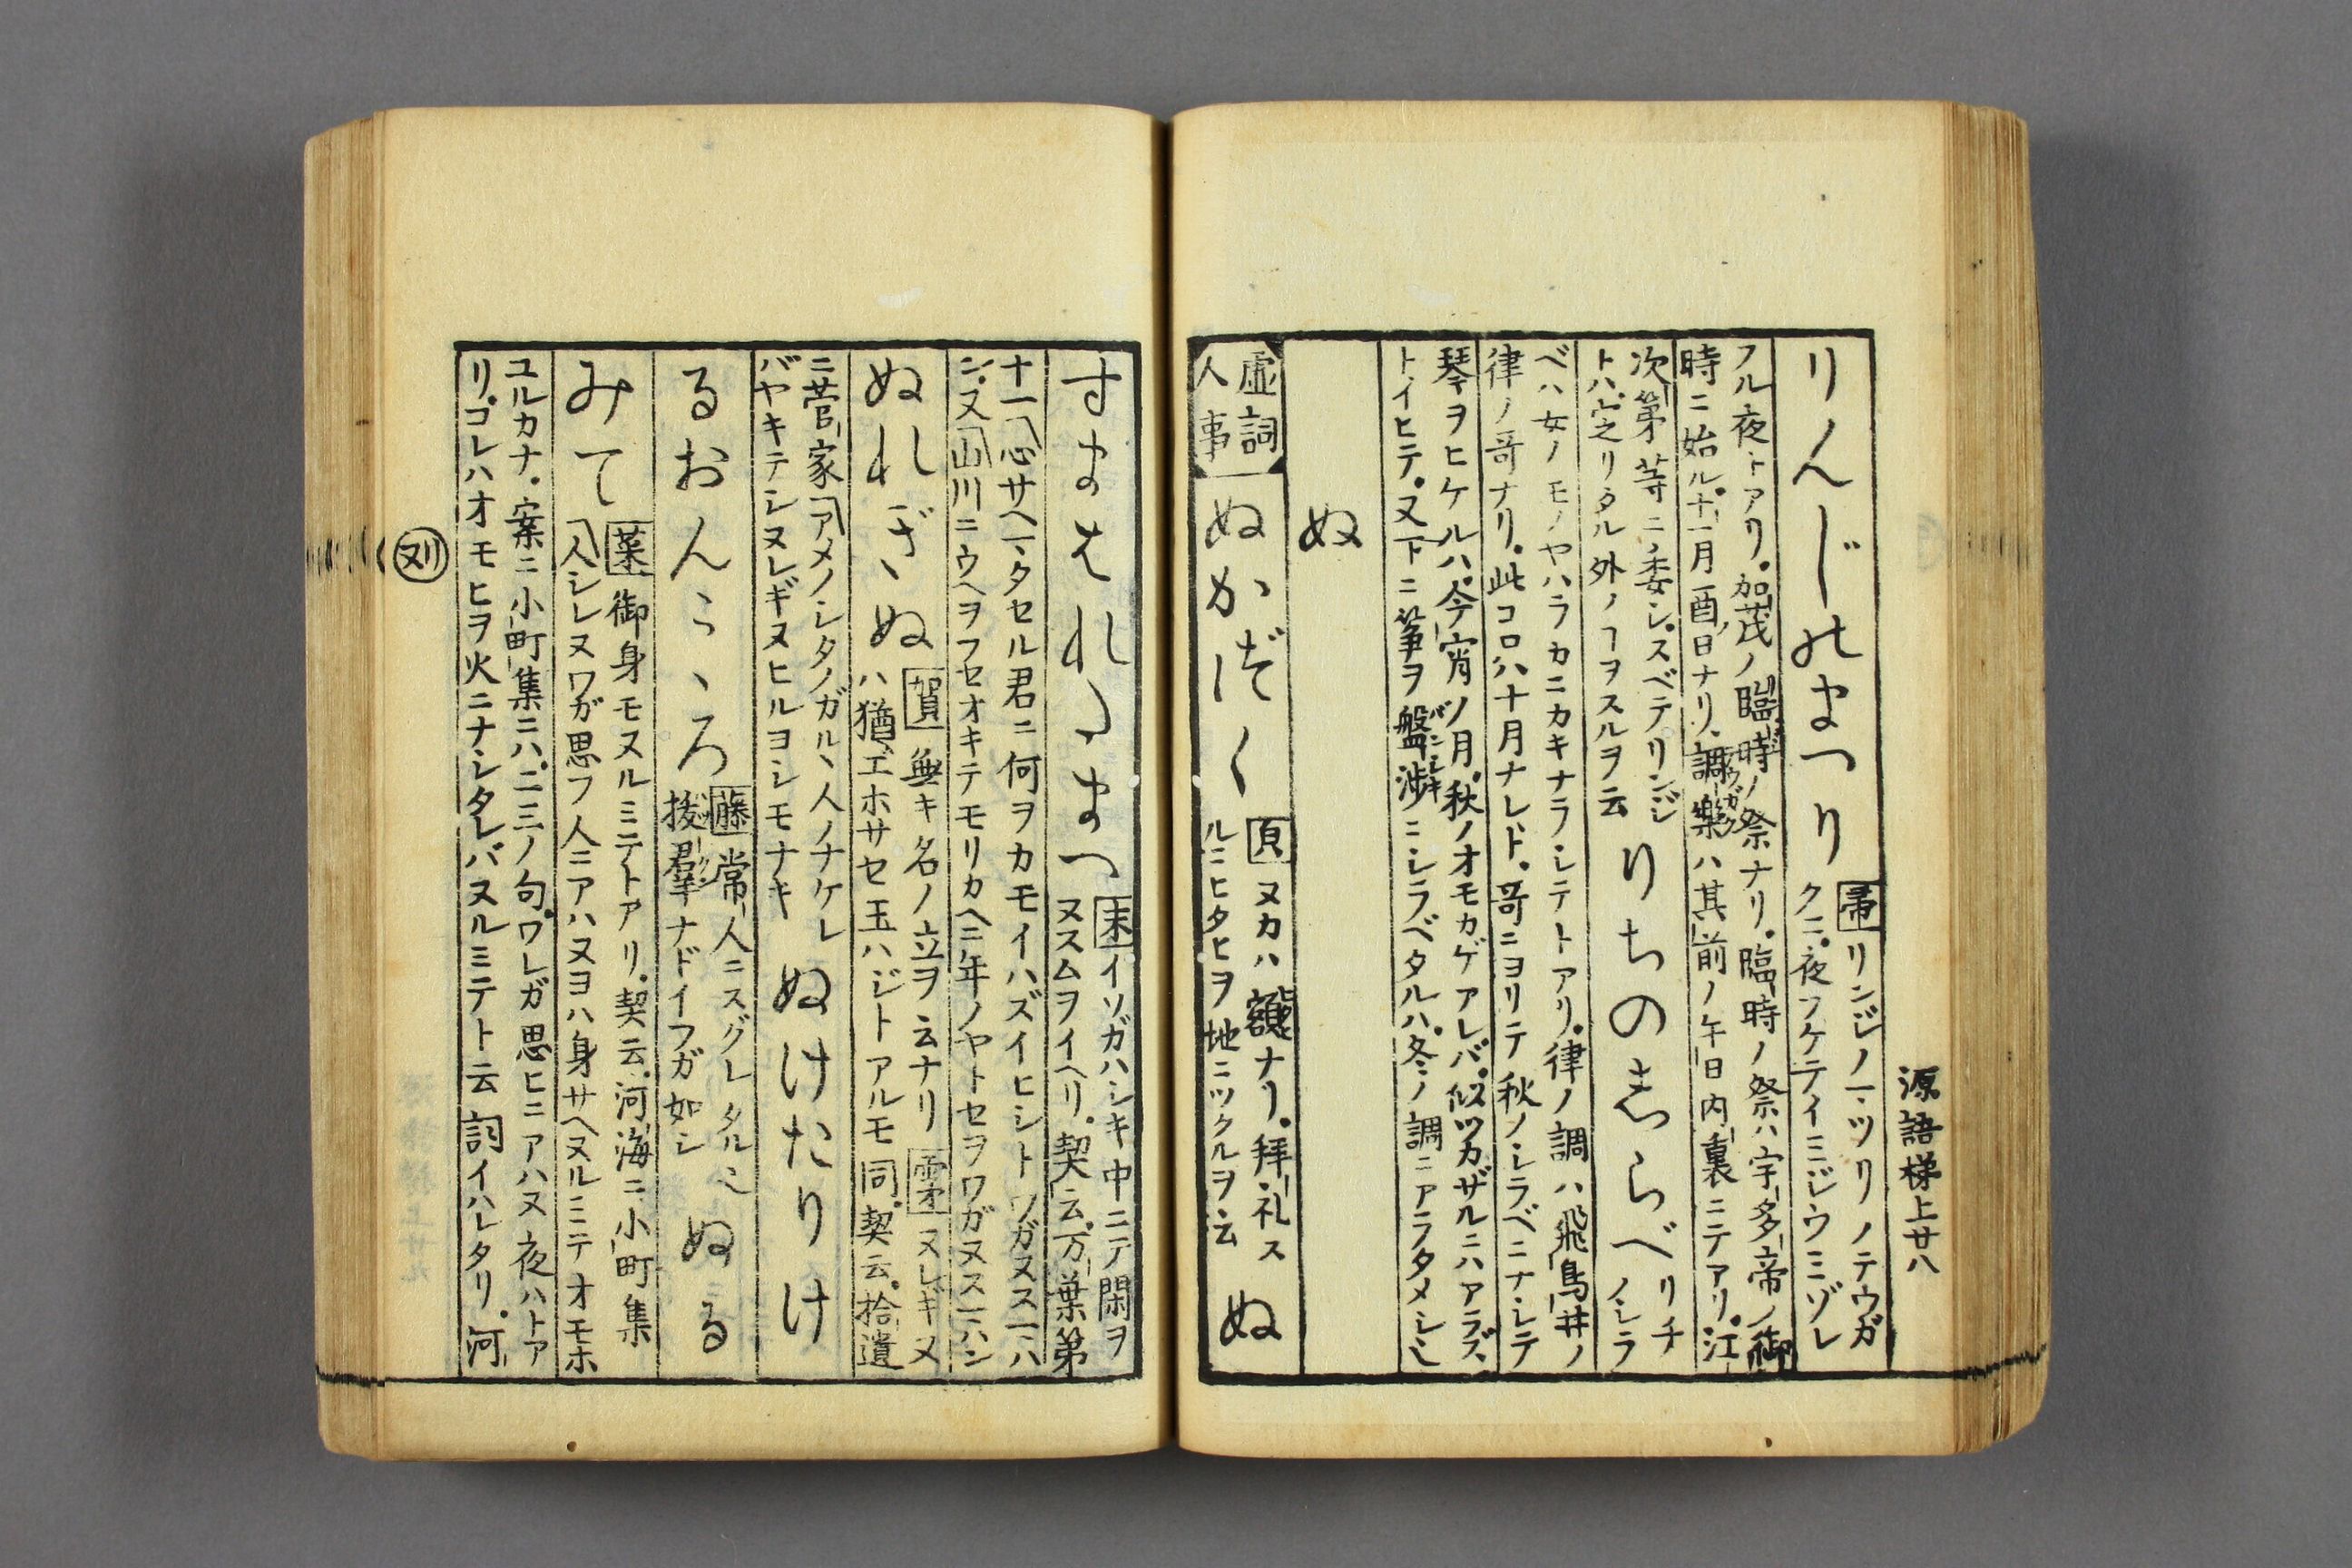 源語梯上廿八
りんじのまつり
帚リンジノマツリノテウガ
クニ夜フケテイミジウミゾレ
フル夜トアリ。加茂ノ臨時ノ祭ナリ。臨時ノ祭ハ宇多帝ノ御
時ニ始ル。十一月酉ノ日ナリ。調楽ハ其前ノ午日内裏ニテアリ。江
次第等ニ委シ。スベテリンジ
トハ定リタル外ノヿヲスルヲ云
りちのしらべ
リチ
ノシラ
ベハ女ノモノヤハラカニカキナラシテトアリ。律ノ調ハ飛鳥井ノ
律ノ哥ナリ。此コロハ十月ナレド。哥ニヨリテ秋ノシラベニナシテ
琴ヲヒケルハ。今宵ノ月。秋ノオモカゲアレバ。似ツカザルニハアラズ、
トイヒテ。又下ニ箏ヲ盤渉ニシラベタルハ。冬ノ調ニアラタメシ也
ぬ
虚詞
人事
ぬかづく
貝ヌカハ額ナリ。拝礼ス
ルニヒタヒヲ地ニツクルヲ云
ぬ
すまはれたまつ
末イソガハシキ中ニテ閑ヲ
ヌスムヲイヘリ。契云万葉第
十一心サヘヽタセル君ニ何ヲカモイハズイヒシトワガヌスヿハ
ン。又山川ニウヘヲフセオキテモリカヘニ年ノヤトセヲワガヌスヿハン
ぬれぎぬ
賀無キ名ノ立ヲ云ナリ
ハ猶エホサセ玉ハジトアルモ同。契云。拾遺
霊ヌレギヌ
ニ菅家アメノシタノガルヽ人ノナケレ
バヤキテシヌレギヌヒルヨシモナキ
ぬけたりけ
るおんこゝろ
藤常人ニスグレタル也
抜群ナドイフガ如シ
ぬる
みて
葉御身モヌルミニテトアリ。契云。河海ニ小町集
人シレヌワガ思フ人ニアハヌヨハ身サヘヌルミテオモホ
ユルカナ。案ニ小町集ニハ。二三ノ句。ワレガ思ヒニアハヌ夜ハトア
リ。コレハオモヒヲ火ニナシタレバヌルミテト云詞イハレタリ。河
ヌリ